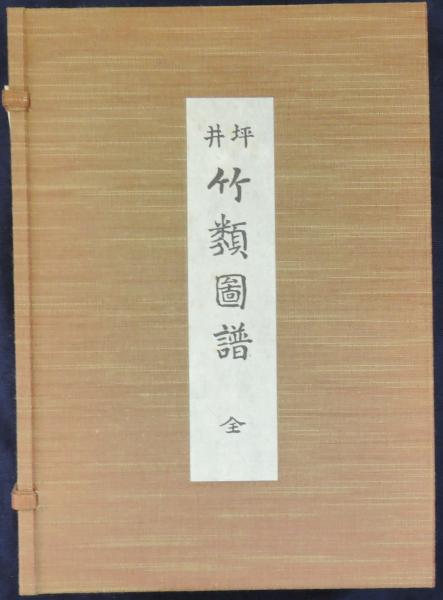 坪井
竹類圖譜
全